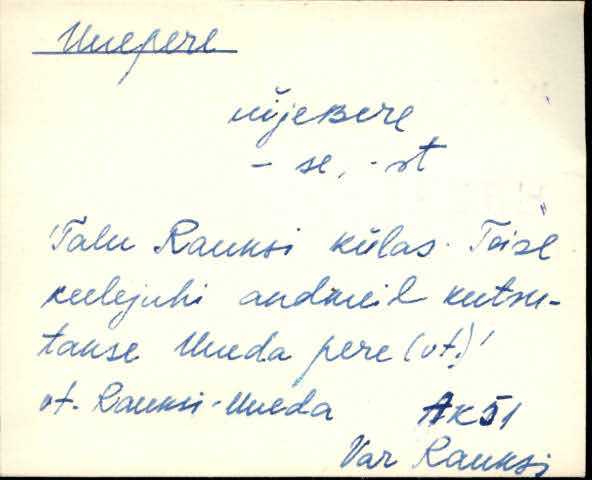 Uuepere
ũijeʙere
- se, - st
'Talu Rauksi külas. Teise
keelejuhi andmeil kutsu-
takse Uueda pere (vt.)'
vt. Rauksi-Uueda AK51
Var Rauksi